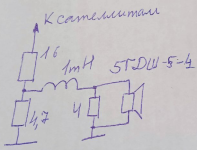 К сателлитам
16
1mH
5ГДШ-5-4
4,7
4